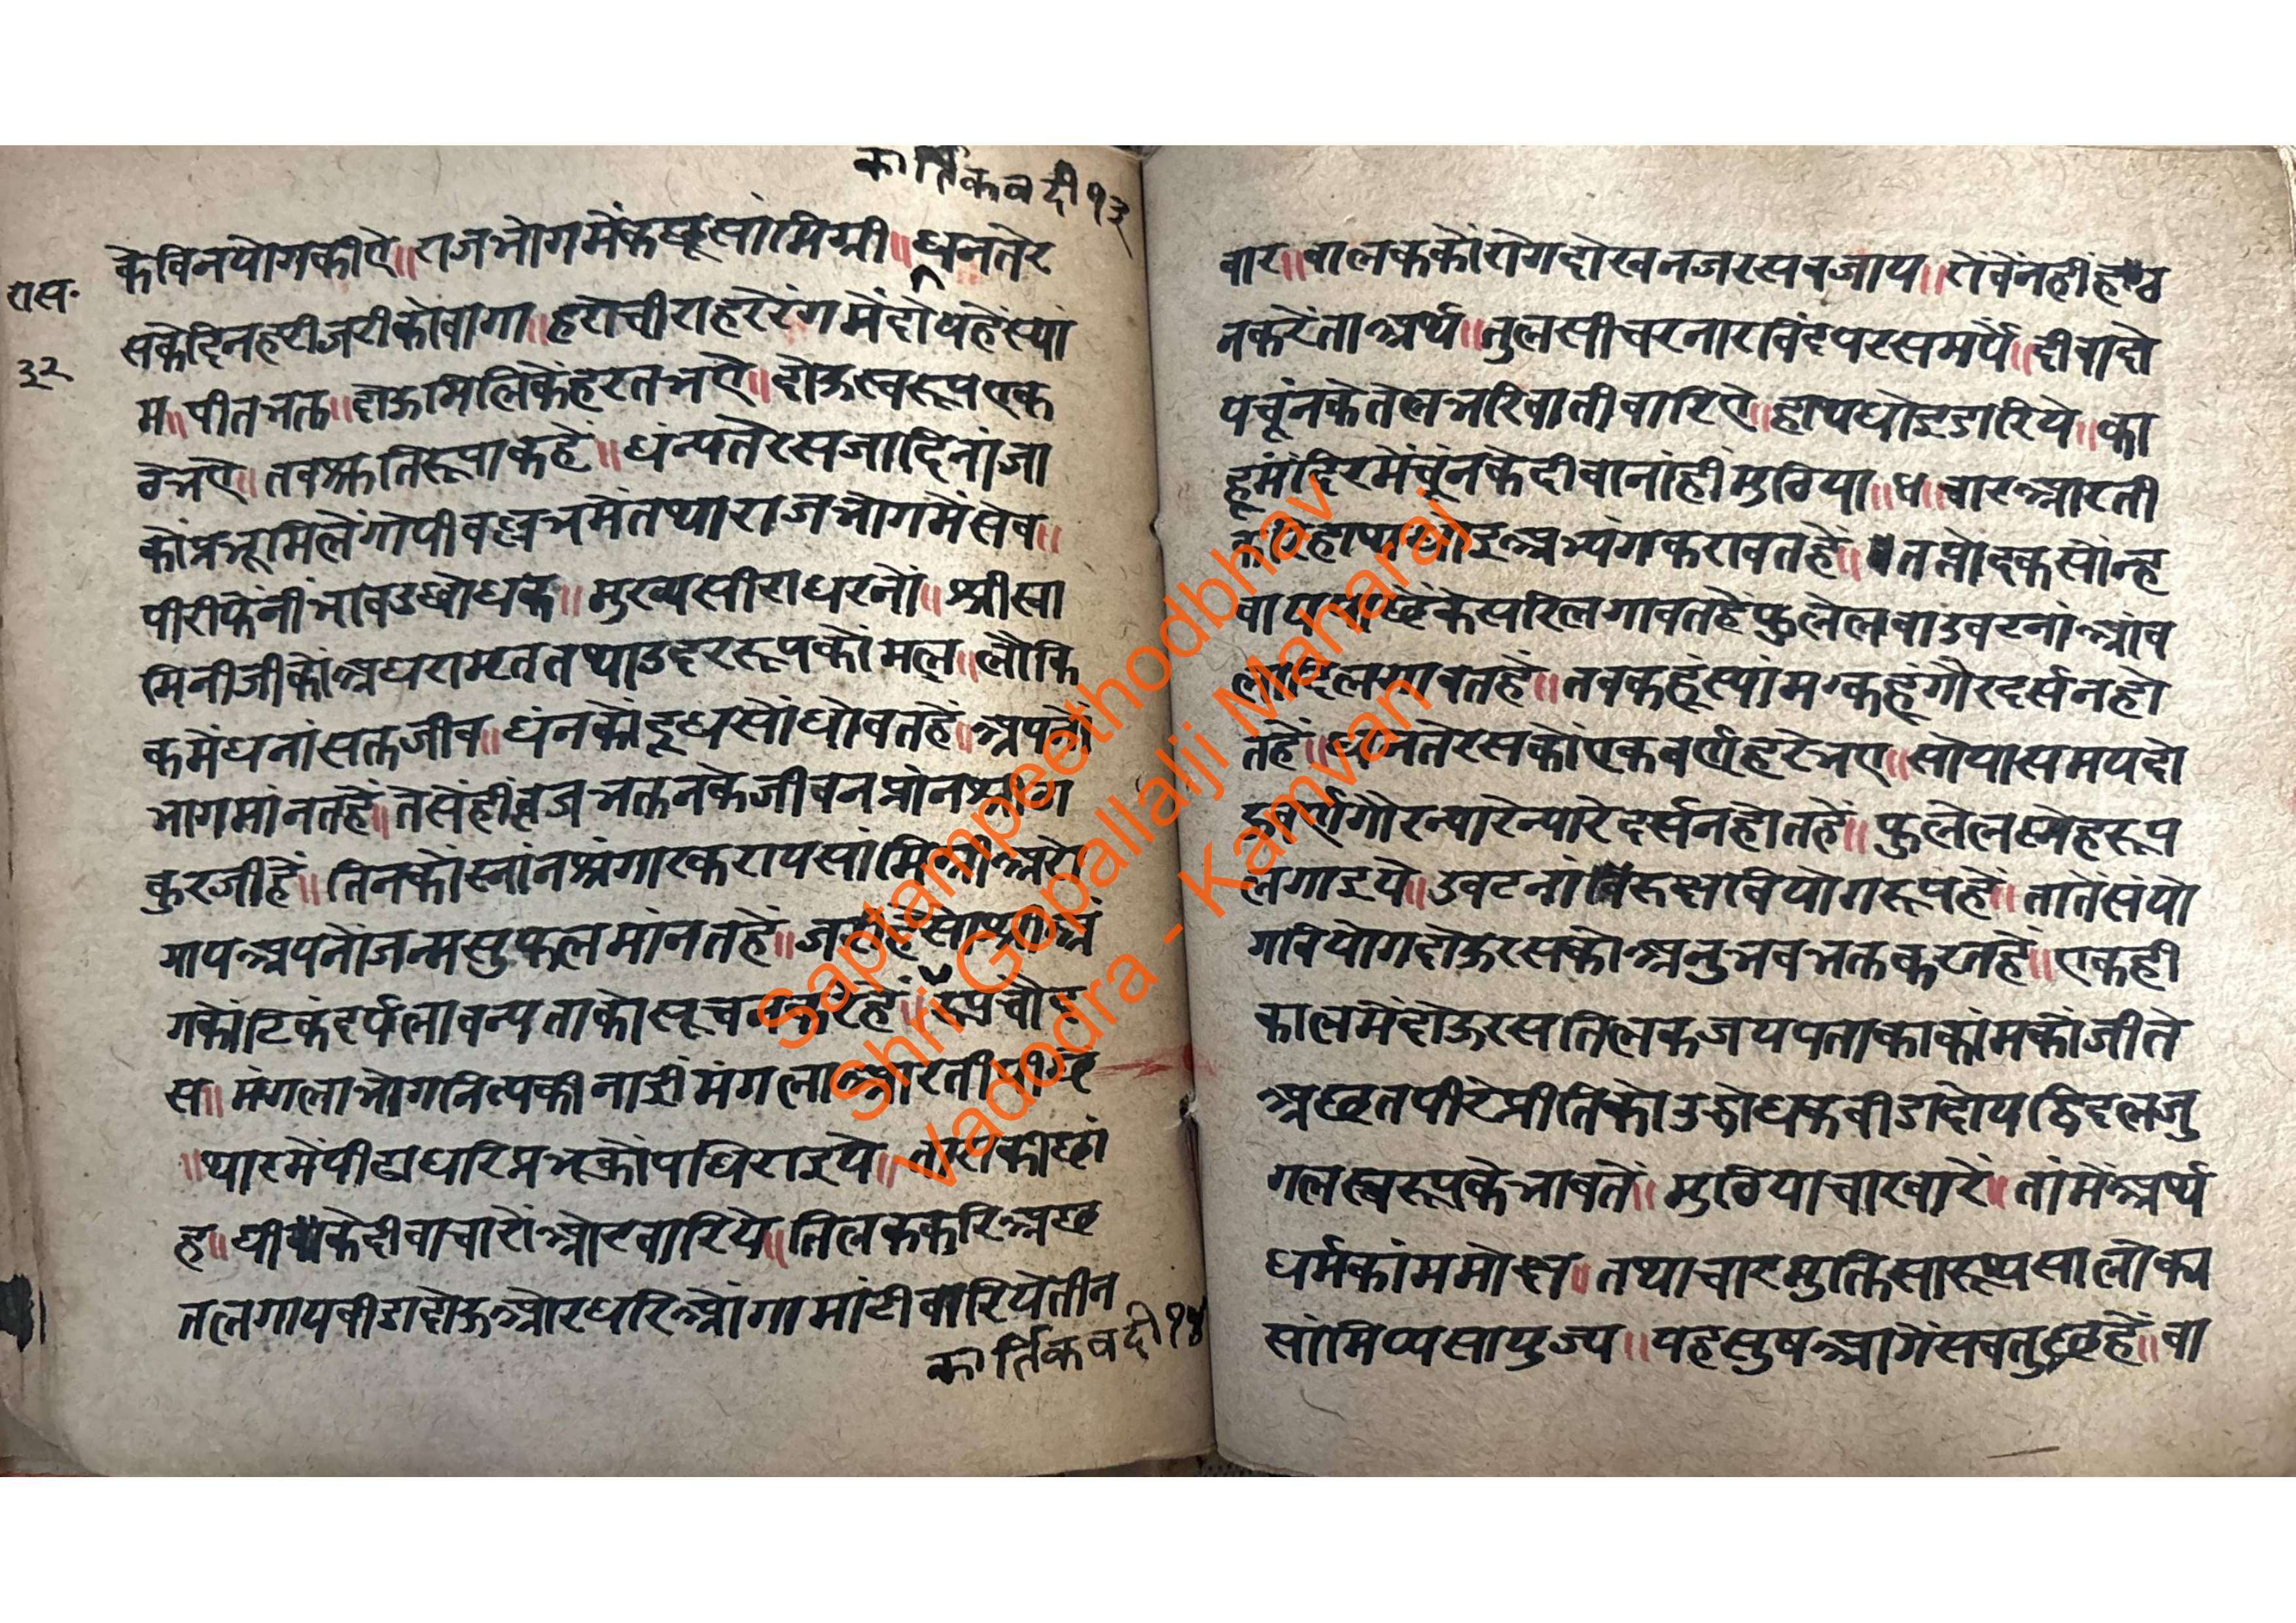 कार्तिकवदी१३
केविनयोगकीऐ॥राजभोगमेंकछूसांमिग्री॥धनतेर
रास॰
सकेदिनहरीजरीकोंवागा॥हराचीराहरेरंगमेंदोयहेंस्यां
३२
म॥पीतभक्त॥दोऊमिलिकेंहरतभऐ॥दोऊस्वरूपएक
तभऐ॥तव
हें॥धंन्यतेरसजादिनांजा
कोंप्रभूमिलेंगोपीवल्लभमेंतथाराजभोगमेंसेव॥
पीरीफेंनीभावउद्बोधक॥मुख्यसीराधरनों॥श्रीस्वा
मिनीजीकोंअधरामृततथाउदररूपकोंमल॥लौकि
कमेंधनांसक्तजीव॥धंनकोंदूधसोंधोवतहें॥अपनों
भागमांनतहें॥तेसेंहींव्रजभक्तनकेजीवनप्रांनश्रीठा
कुरजीहें॥तिनकोंस्नांनश्रंगारकरायसांमिग्रीअरो
गायअपनोंजन्मसुफलमांनतहें॥
गकोंटिकंदर्पलावन्यताकोसूचनकरिहें॥रूपचौद
स॥मंगलाभोगनित्यकीनांईमंगलाआरतीपीछें
॥थारमेंपीढाधरिप्रभुकोंपधिराइये॥तासकीछां
ह॥घीकेदीवाचारोंओरवारिये॥तिलककरिअछ
तलगायवीडादोऊओरधरिओंगामांटीवारियेतीन
कार्तिकवदी१४
वार॥वालककोंरोगदोखनजरसवजाय॥रोवेंनहींह
नकरेंताअर्थ॥तुलसीचरनारविंदपरसमर्पें॥दीवादो
यचूंनकेतेलभरिवातीवारिऐ॥हाथधोइडारिये॥का
हूमंदिरमेंचूंनकेदीवानांहीमुठिया॥४॥वारआरती
करिहाथधोइअभ्यंगकरावतहें॥तप्तोदकसोंन्ह
वायपाछेंकेसरिलगावतहेंफुलेलवाउवटनांआंव
लादिलगावतहें॥तवकहूंस्यांमकहूंगौरदर्सनहो
तहें॥धनतेरसकोंएकवर्णहरेभए॥सोयासमयदो
ऊवर्णगौरन्यारेन्यारेदर्सनहोतहें॥फुलेलस्नेहरूप
लगाइये॥उवटनांविरूक्षवियोगरूपहें॥तातेंसंयो
गवियोगदोऊरसकोअनुभवभक्तकरतहें॥एकही
कालमेंदोऊरसतिलकजयपताकाकांमकोंजीते
अछतपीरेप्रीतिकोउद्बोधकवीडादोयद्विदलजु
गलस्वरूपकेभावतें॥मुठियाचारवारें॥तांमेंअर्थ
धर्मकांममोक्ष॥तथाचारमुक्तिसारूप्यसालोक्य
सांमिप्यसायुज्य॥यहसुषआगेंसवतुछहें॥वा
Saptampeethodbhav
Shri Gopallalji Maharaj
Vadodra - Kamvan